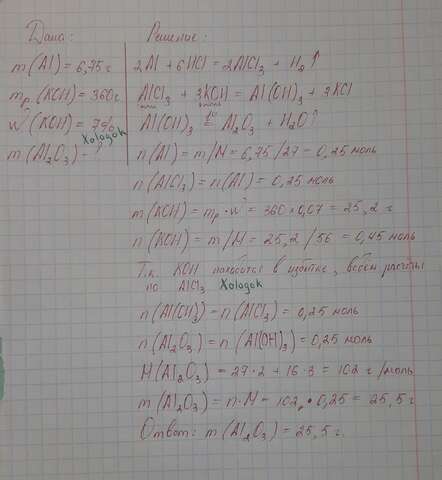 Дано:
m(Al) = 6,75г
mр(KOH) = 360г
w(KOH) = 7%
Xologok
m(Al₂O₃) - ?
Решение:
2Al + 6HCl = 2AlCl₃ + H₂↑
AlCl₃ + 3KOH = Al(OH)₃ + 3KCl
Al(OH)₃ = Al₂O₃ + H₂O↑
n(Al) = m/M = 6,75/27 = 0,25 моль
n(AlCl₃) = n(Al) = 0,25 моль
m(KOH) = mр·w = 360·0,07 = 25,2 г
n(KOH) = m/M = 25,2/56 = 0,45 моль
Т.к. KOH в избытке, ведем расчеты
по AlCl₃ Xologok
n(Al(OH)₃) = n(AlCl₃) = 0,25 моль
n(Al₂O₃) = n(Al(OH)₃) = 0,25 моль
M(Al₂O₃) = 27·2 + 16·3 = 102 г/моль
m(Al₂O₃) = n·M = 102·0,25 = 25,5 г
Ответ: m(Al₂O₃) = 25,5 г.